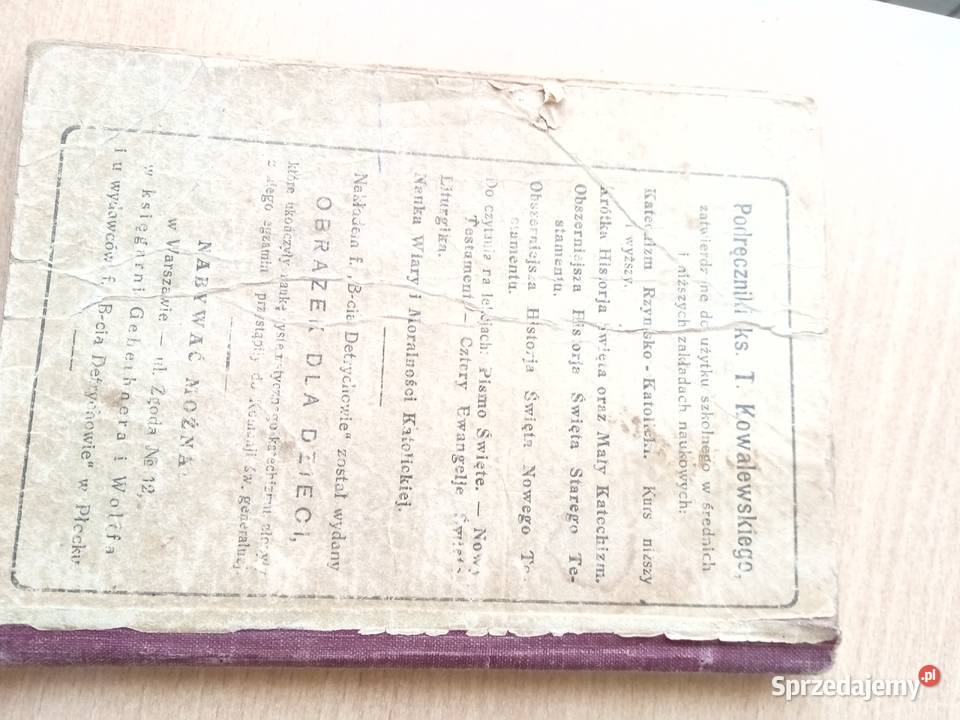 Podręczniki ks. T. Kowalewskiego,
zatwierdzone do użytku szkolnego w średnich
i niższych zakładach naukowych:
Katechizm Rzymsko - Katolicki. Kurs niższy
i wyższy.
Krótka Historja Święta oraz Mały Katechizm.
Obszerniejsza Historja Święta Starego Te-
stamentu.
Obszerniejsza Historja Święta Nowego Te-
stamentu.
Do czytania na lekcjach: Pismo Święte. — Nowy
Testament, Cztery Ewangelje Święte.
Liturgika.
Nauka Wiary i Moralności Katolickiej.
Nakładem f. „B-cia Detrychowie" został wydany
OBRAZEK DLA DZIECI,
które ukończyły naukę systematycznego katechizmu
egzamin przystąpiły do Komunji św. generalnej
NABYWAĆ MOŻNA:
w Warszawie — ul. Zgoda № 12,-
w księgarni Gebethnera i Wolffa
i u wydawców, f. „B-cia Detrychowie" w Płocku
Sprzedajemy.pl